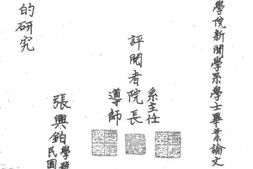 學院新聞學系學士畢業論文
系主任
評閱者院長
導師
張興鉑
民國
的研究